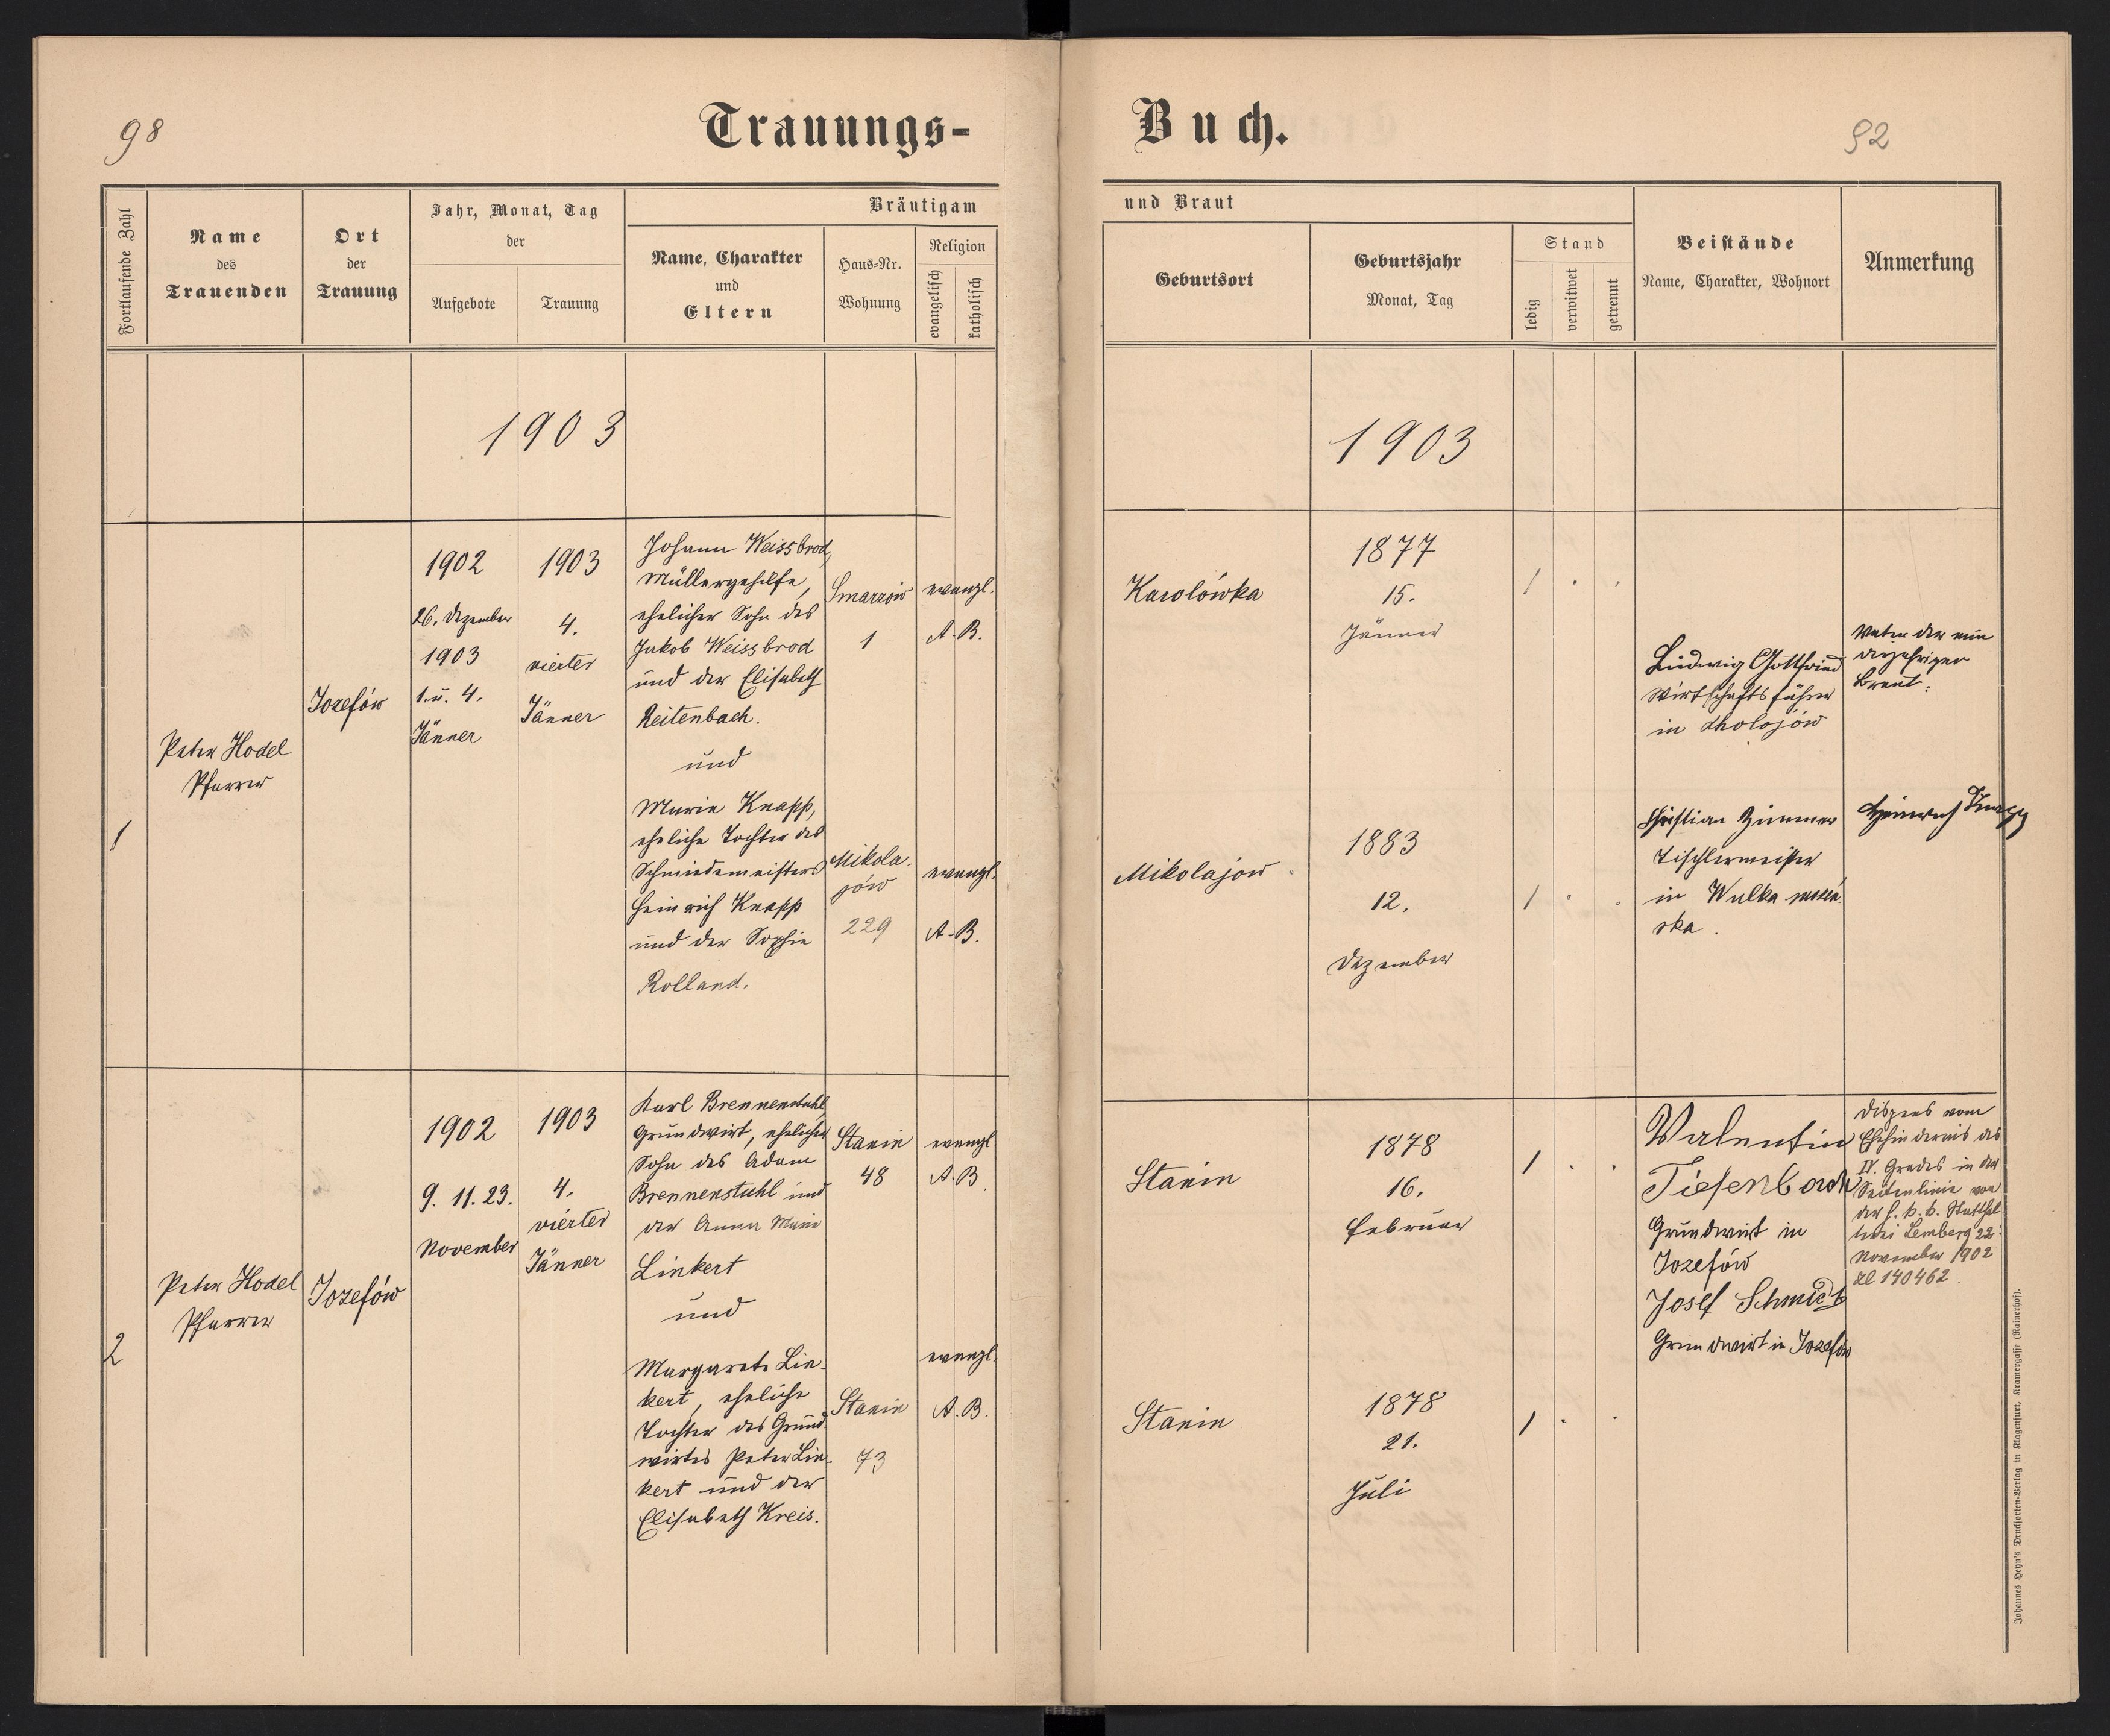 98
Trauungs-
Buch.
92
Fortlaufende Zahl
Name
des
Trauenden
Ort
der
Trauung
Jahr, Monat, Tag
der
Aufgebote
Trauung
Bräutigam
Name, Charakter
und
Eltern
Haus-Nr.
Wohnung
Religion
evangelisch
katholisch
und Braut
Geburtsort
Geburtsjahr
Monat, Tag
Stand
ledig
verwitwet
getrennt
Beistände
Name, Charakter, Wohnort
Anmerkung
1903
1903
1
Peter Hodel
Pfarrer
Jozefów
1902
26. Dezember
1903
1. u. 4.
Jänner
1903
4.
vierter
Jänner
Johann Weissbrod,
Müllergehilfe,
ehelicher Sohn des
Jakob Weissbrod
und der Elisabeth
Reitenbach.
und
Maria Knapp,
eheliche Tochter des
Schmiedemeisters
Heinrich Knapp
und der Sophie
Rolland.
Smarzów
1
evangl.
A. B.
Mikola-
jów
229
evangl.
A. B.
Karolówka
1877
15.
Jänner
1
Mikolajow
1883
12.
Dezember
1
Ludwig Gottfried
Wirtschaftsführer
in Cholojów
Christian Zimmer
Tischlermeister
in Wulka
ska.
Vater der min
derjährigen
Braut:
Heinrich Knapp
2
Peter Hodel
Pfarrer
Jozefów
1902
9. 11. 23.
November
1903
4.
vierter
Jänner
Karl Brennenstuhl,
Grundwirt, ehelicher
Sohn des Adam
Brennenstuhl und
der Anna Maria
Linkert
und
Margarete Lin-
kert, eheliche
Tochter des Grund-
wirtes Peter Lin-
kert und der
Elisabeth Kreis.
Stanin
48
evangl
A. B.
Stanin
73
evangl.
A. B.
Stanin
1878
16.
Februar
1
Stanin
1878
21.
Juli
1
Valentin
Tiefenbach
Grundwirt in
Jozefów
Josef Schmidt
Grundwirt in Jozefów
Dispens vom
Ehehindernis des
IV. Grades in der
Seitenlinie von
der h. k. k. Statthal
terei Lemberg 22.
November 1902
Zl 140462.
Johannes Heyn's Drucksorten-Verlag in Klagenfurt, Kramergasse (Rainerhof).